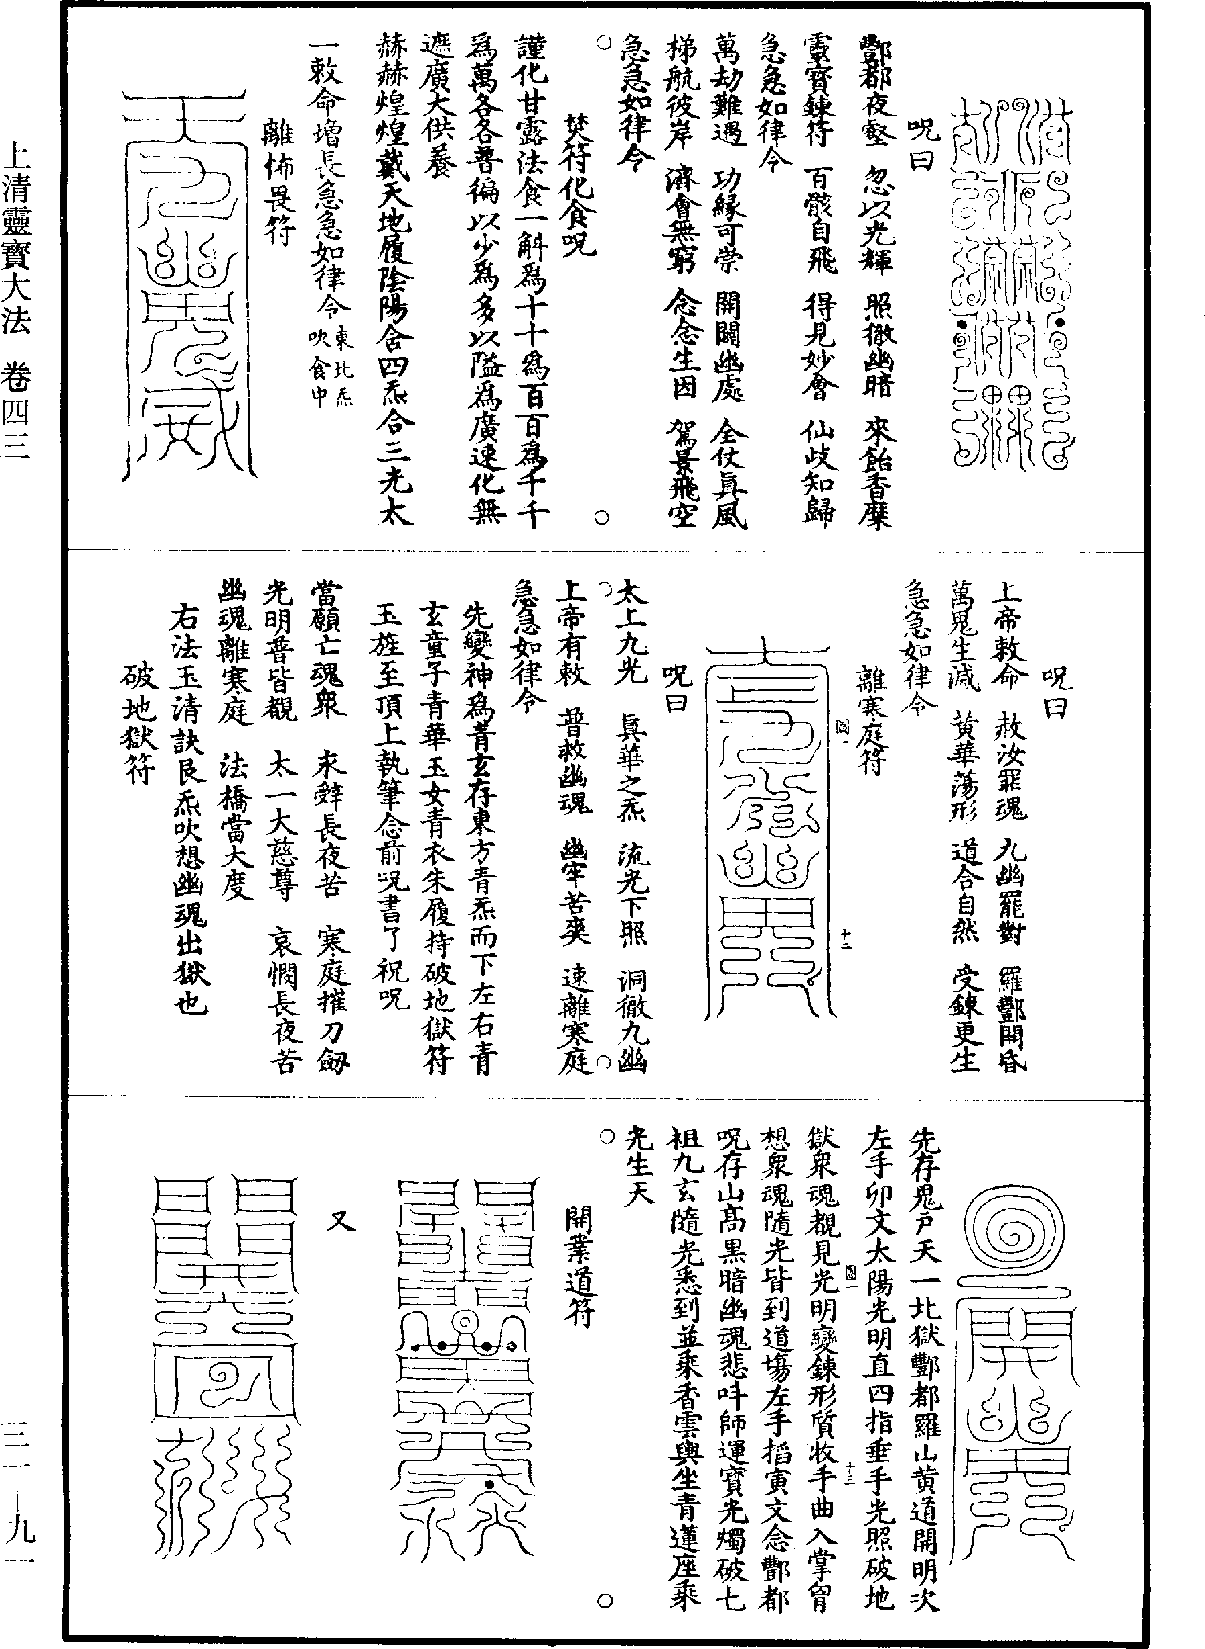 呪曰
酆都夜壑　忽以光輝　照徹幽暗　來飴香糜
靈寶鍊符　百骸自飛　得見妙會　仙歧知歸
急急如律令
萬劫難遇　功緣可崇　開闢幽處　全仗真風
梯航彼岸　濟會無窮　念念生因　駕景飛空
急急如律令
焚符化食呪
謹化甘露法食一斛爲十十爲百百爲千千
爲萬各各普徧以少爲多以隘爲廣速化無
遮廣大供養
赫赫煌煌戴天地履陰陽含四炁合三光太
一敕命增長急急如律令東北炁吹食中
離怖畏符
呪曰
上帝敕命　赦汝罪魂　九幽罷對　羅酆開昏
萬鬼生滅　黃華蕩形　道合自然　受鍊更生
急急如律令
離寒庭符
呪曰
太上九光　真華之炁　流光下照　洞徹九幽
上帝有敕　普救幽魂　幽牢苦爽　速離寒庭
急急如律令
先變神爲青玄存東方青炁而下左右青
玄童子青華玉女青衣朱履持破地獄符
玉旌至頂上執筆念前呪書了祝呪
當願亡魂衆　永辭長夜苦　寒庭摧刀劒
光明普皆覩　太一大慈尊　哀憫長夜苦
幽魂離寒庭　法橋當大度
右法玉清訣艮炁吹想幽魂出獄也
破地獄符
先存鬼戶天一北獄酆都羅山黃道開明次
左手卯文太陽光明直四指垂手光照破地
獄衆魂覩見光明變鍊形質收手曲入掌胷
想衆魂隨光皆到道場左手搯寅文念酆都
呪存山高黑暗幽魂悲呌師運寶光燭破七
祖九玄隨光悉到並乘香雲與坐青蓮座乘
光生天
開業道符
又
上清靈寶大法　卷四三
三一—九一